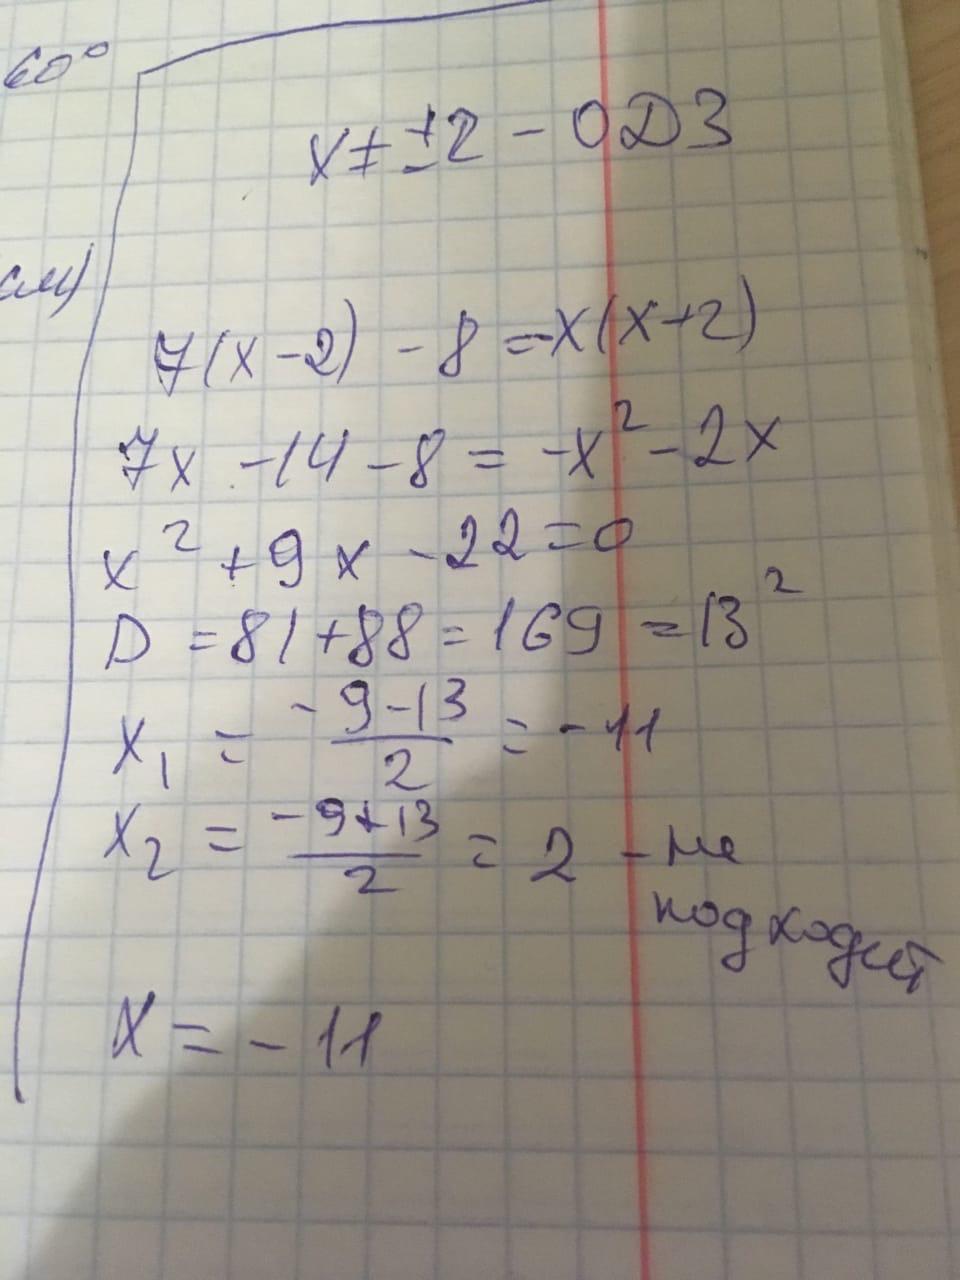 60°
x ≠ ±2 - ОДЗ
см)
7(x-2) - 8 = -x(x+2)
7x - 14 - 8 = -x² - 2x
x² + 9x - 22 = 0
D = 81 + 88 = 169 = 13²
x₁ = (-9-13)/2 = -11
x₂ = (-9+13)/2 = 2 - не
подходит
x = -11